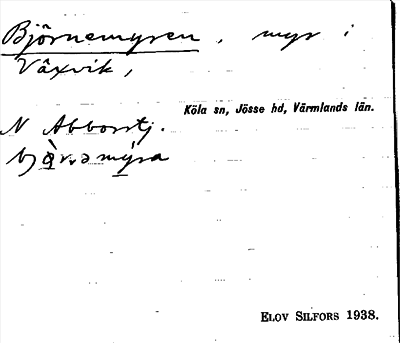 Björnemyren, myr i
Växvik,
Köla sn, Jösse hd, Värmlands län.
N Abborrtj.
ELOV SILFORS 1938.